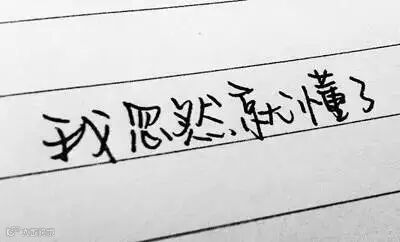 我忽然就懂了